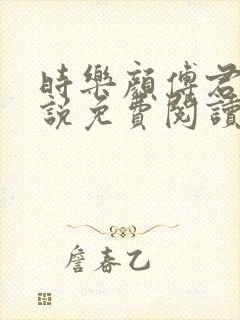 時樂顏傅君
說免費閱讀
詹春乙